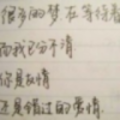 很多的梦在等待着
而我已分不清
你是友情
还是错过的爱情